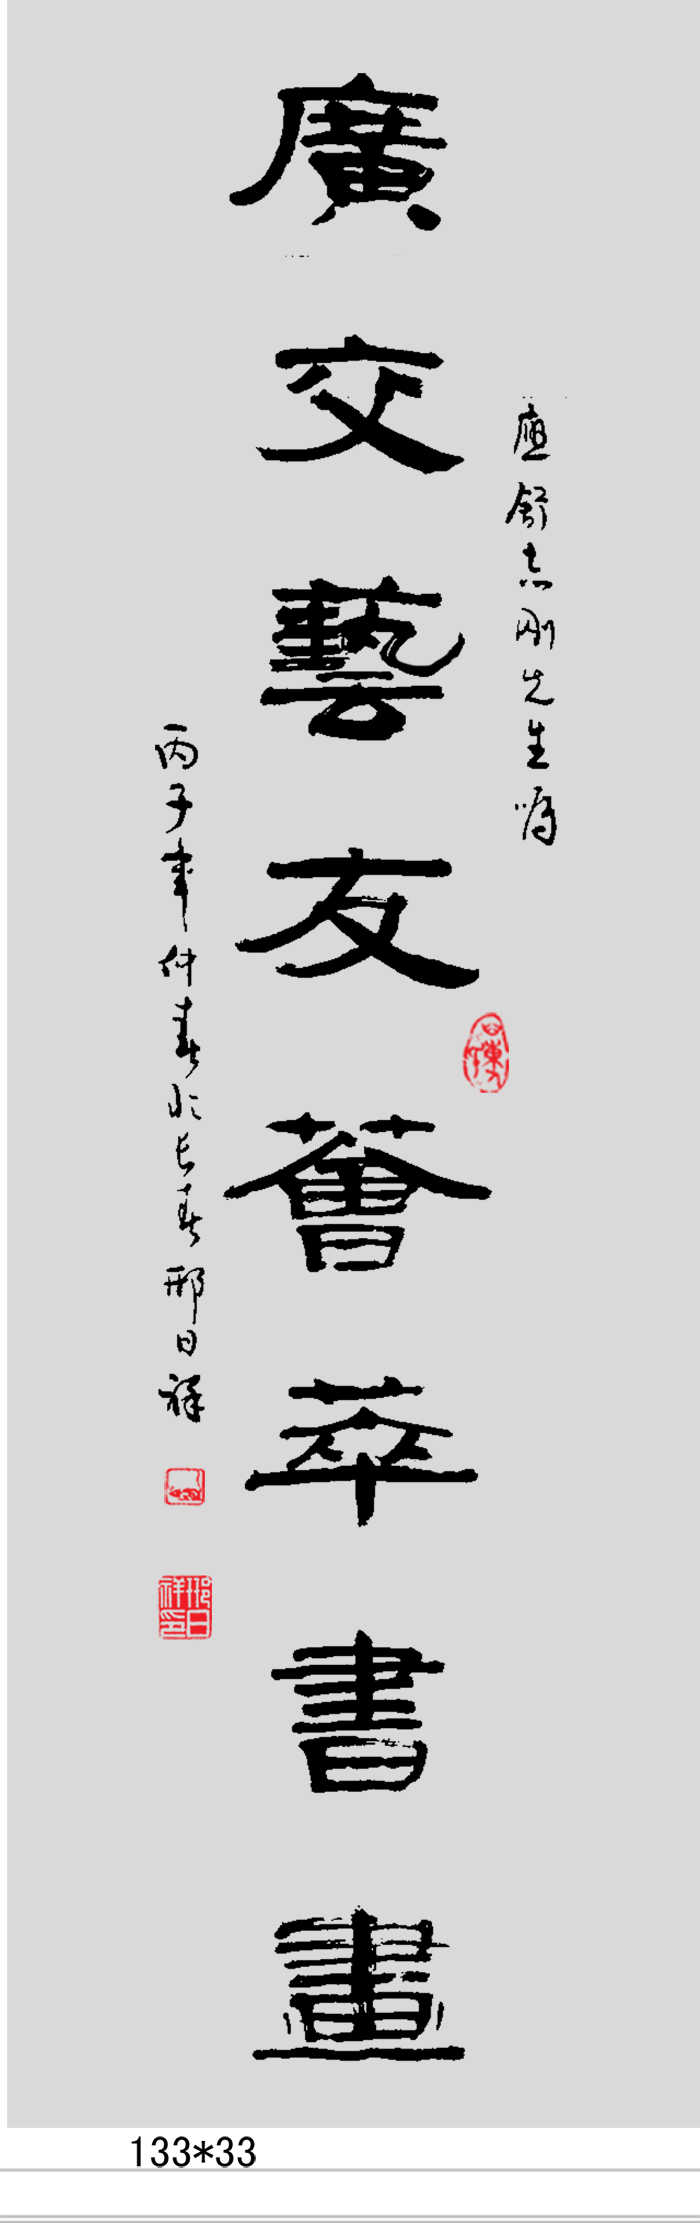 應舒志剛先生囑
廣交藝友薈萃書畫
丙子年仲春於長春邢日祥
邢日祥印
133*33